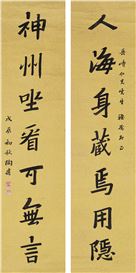 人海身藏焉用隱
神州坐看可無言
戊辰初秋